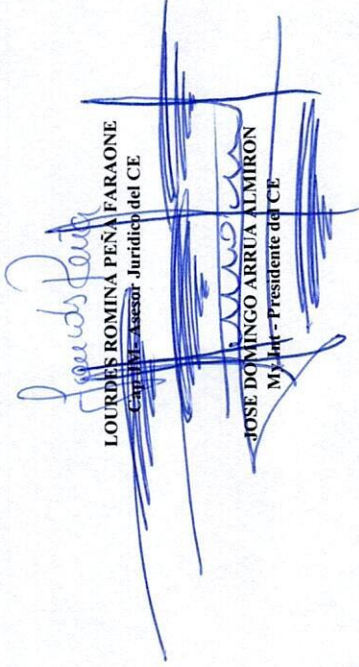 Lourdes Peña
LOURDES ROMINA PEÑA FARAONE
Cap JM- Asesor Jurídico del CE
JOSE DOMINGO ARRUA ALMIRON
My Int - Presidente del CE